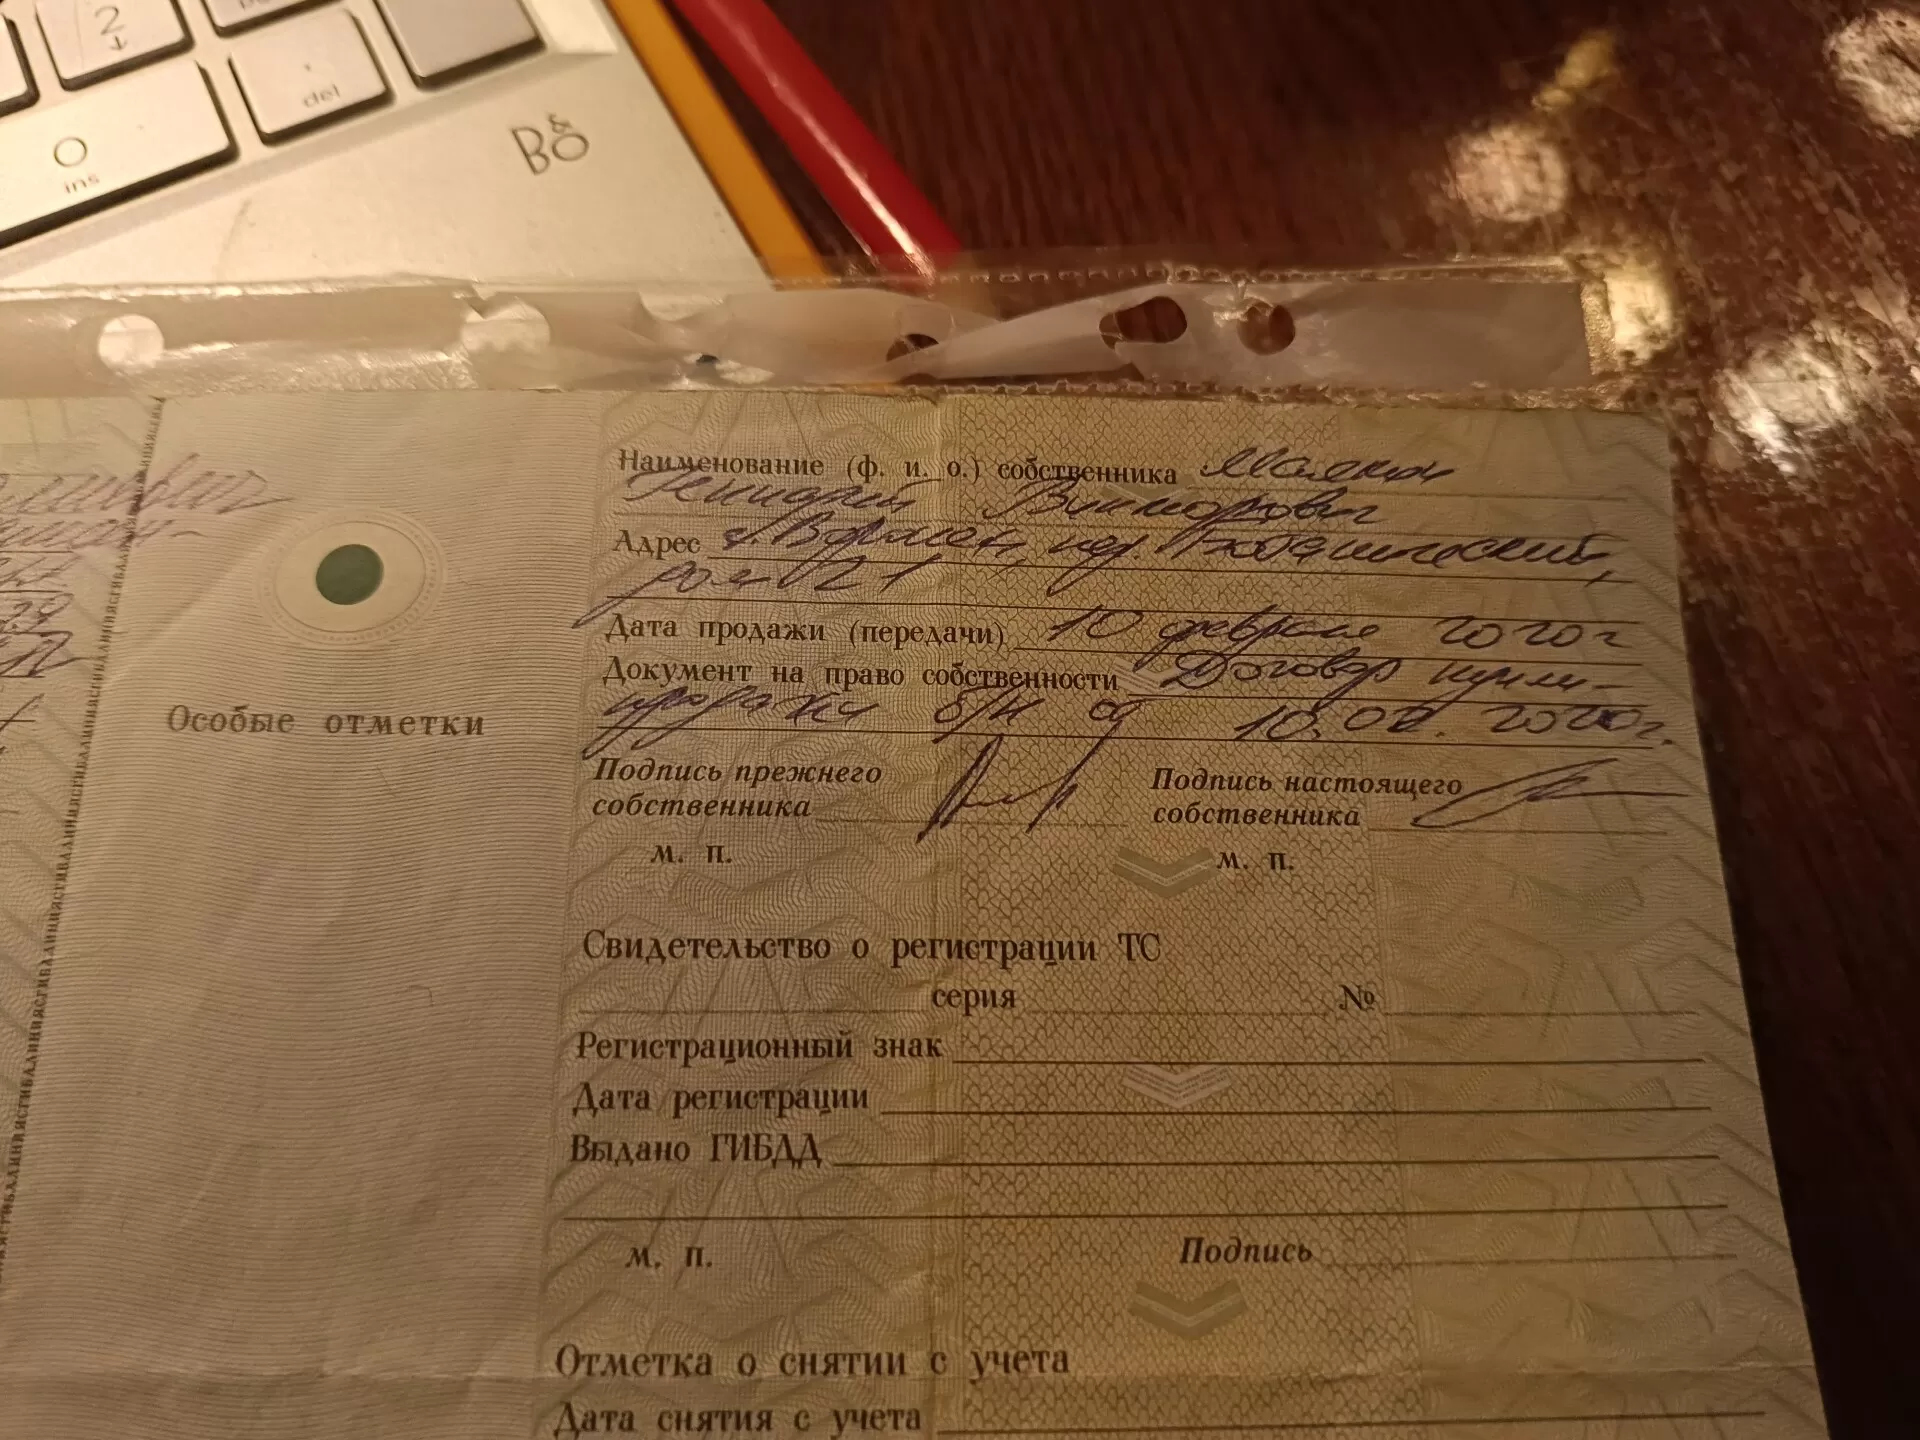 2
↓
del
0
ins
B&O
Наименование (ф. и. о.) собственника
Викторович
Адрес г. Воркута, пер.
дом 21
Дата продажи (передачи) 10 февраля 2020 г
Документ на право собственности Договор купли-
продажи б/н от 10.02.2020г.
Особые отметки
Подпись прежнего
собственника
Подпись настоящего
собственника
м. п.
м. п.
Свидетельство о регистрации ТС
серия №
Регистрационный знак
Дата регистрации
Выдано ГИБДД
м. п.
Подпись
Отметка о снятии с учета
Дата снятия с учета